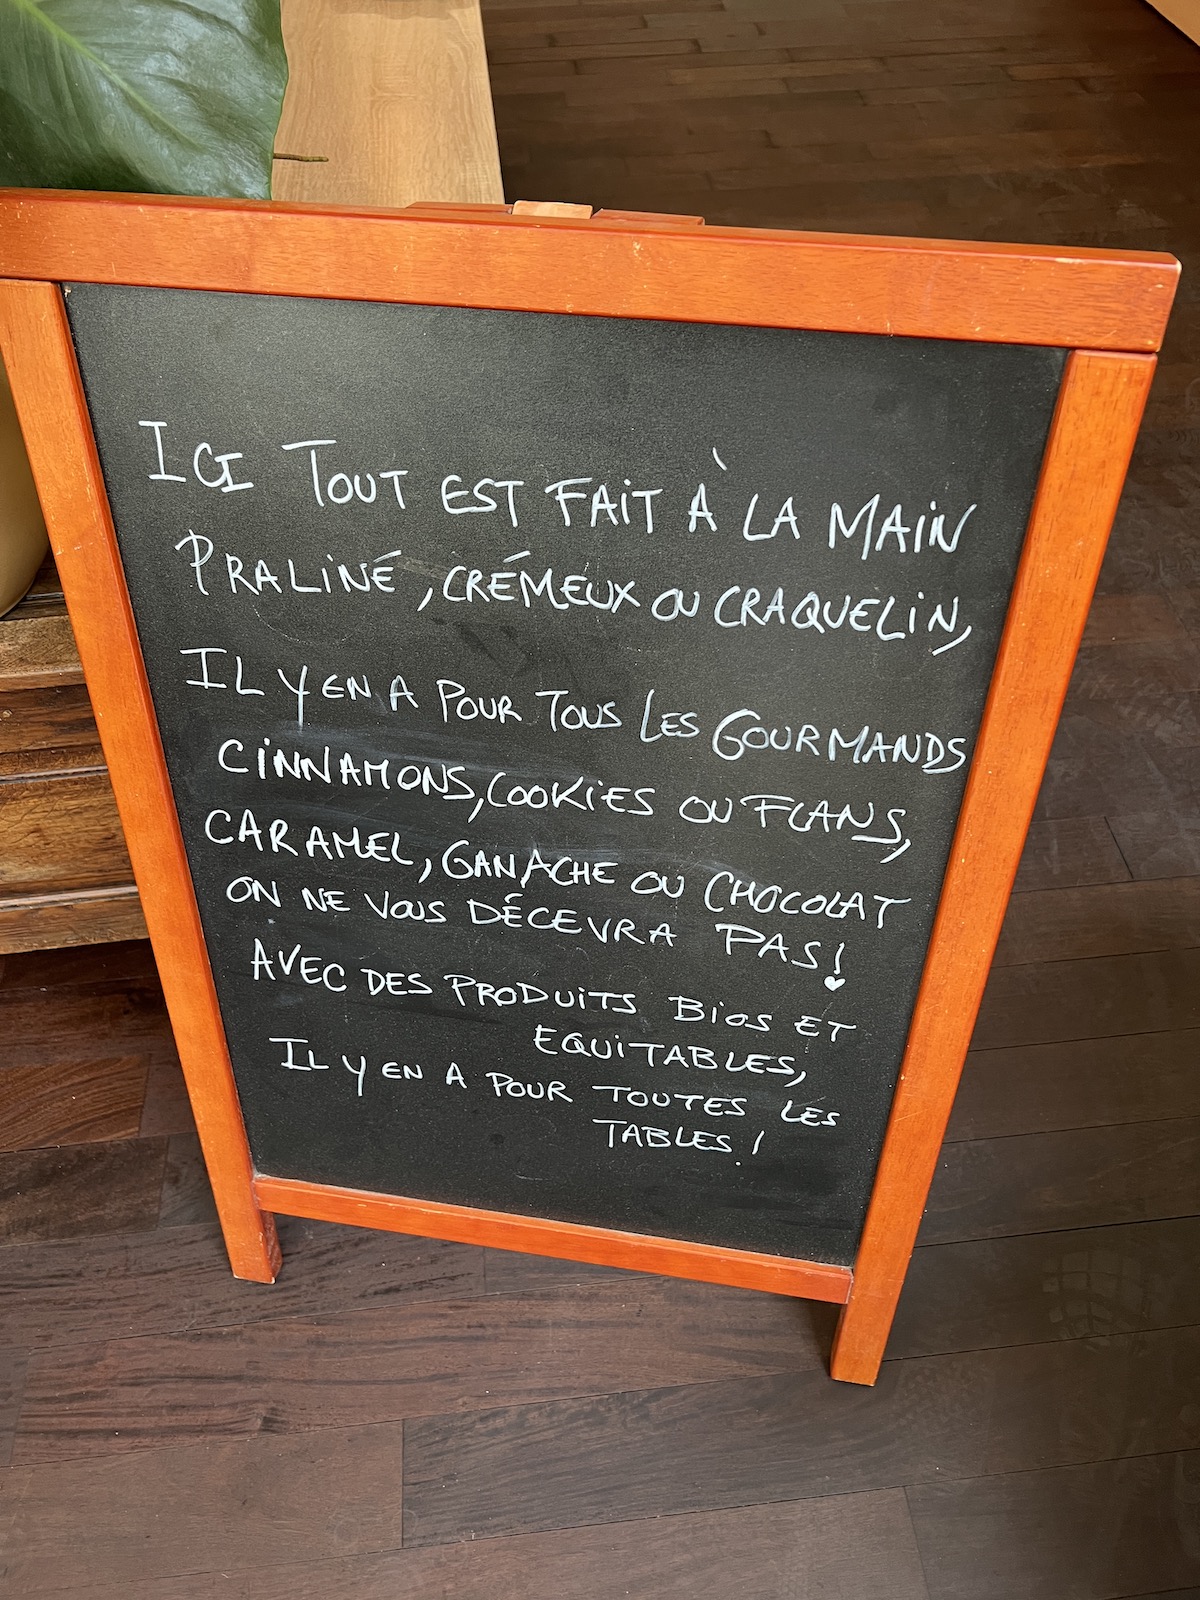 ICI TOUT EST FAIT À LA MAIN
PRALINÉ, CRÉMEUX OU CRAQUELIN,
IL Y EN A POUR TOUS LES GOURMANDS
CINNAMONS, COOKIES OU FLANS,
CARAMEL, GANACHE OU CHOCOLAT
ON NE VOUS DÉCEVRA PAS!
AVEC DES PRODUITS BIOS ET
EQUITABLES,
IL Y EN A POUR TOUTES LES
TABLES!